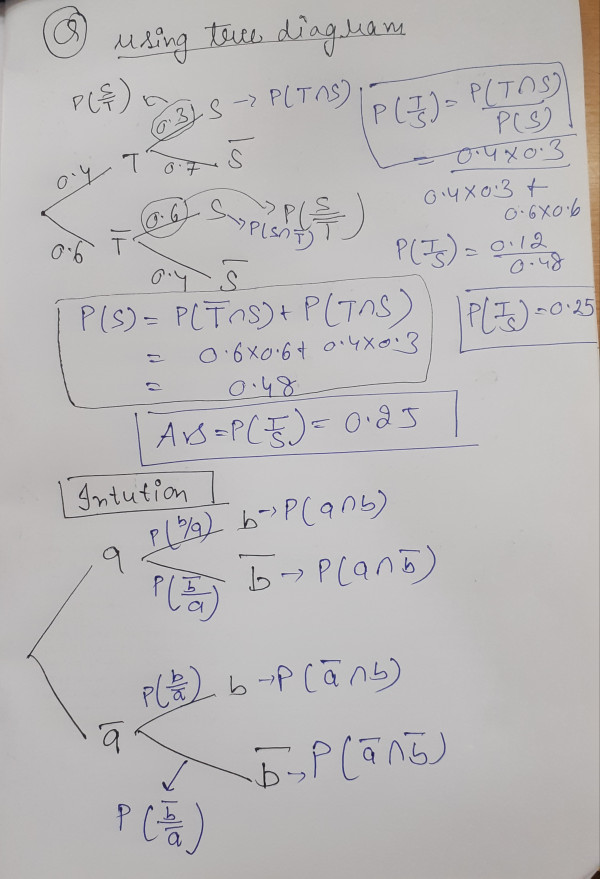 Q using tree diagram
P(S/T) 0.3 S → P(T∩S)
0.4 T 0.7 S̅
0.6 T̅ 0.6 S P(S∩T̅) P(S/T̅)
0.4 S̅
P(T/S) = P(T∩S)/P(S)
= 0.4×0.3
0.4×0.3 +
0.6×0.6
P(T/S) = 0.12/0.48
P(T/S) = 0.25
P(S) = P(T̅∩S) + P(T∩S)
= 0.6×0.6 + 0.4×0.3
= 0.48
Ans = P(T/S) = 0.25
Intution
a P(b/a) b → P(a∩b)
P(b̅/a) b̅ → P(a∩b̅)
a̅ P(b/a̅) b → P(a̅∩b)
b̅ → P(a̅∩b̅)
P(b̅/a̅)